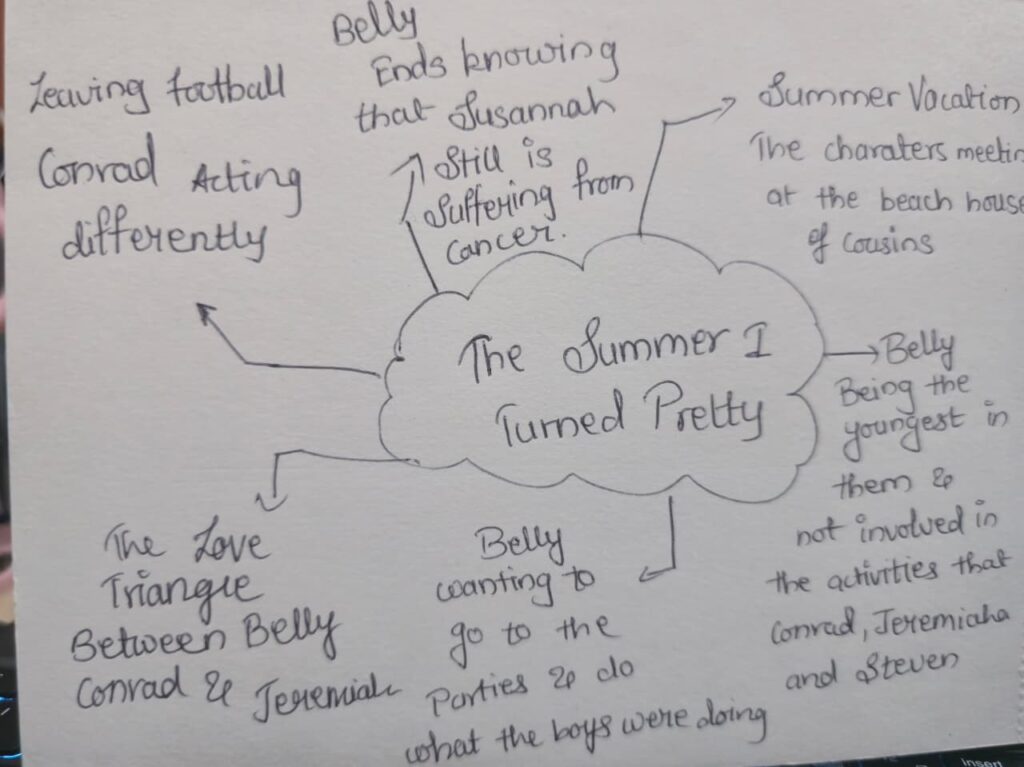 The Summer I
Turned Pretty
Summer Vacation
The charaters meetin
at the beach house
of Cousins
Belly
Being the
youngest in
them &
not involved in
the activities that
Conrad, Jeremiaha
and Steven
Belly
wanting to
go to the
Parties & do
what the boys were doing
The Love
Triangle
Between Belly
Conrad & Jeremiah
Leaving football
Conrad Acting
differently
Belly
Ends knowing
that Susannah
Still is
Suffering from
Cancer.
Insert